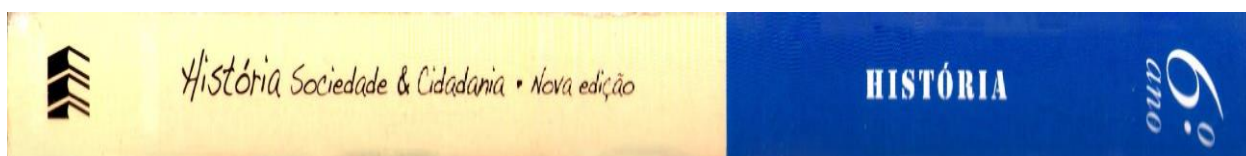 História Sociedade & Cidadania • Nova edição
HISTÓRIA
6º.
ano